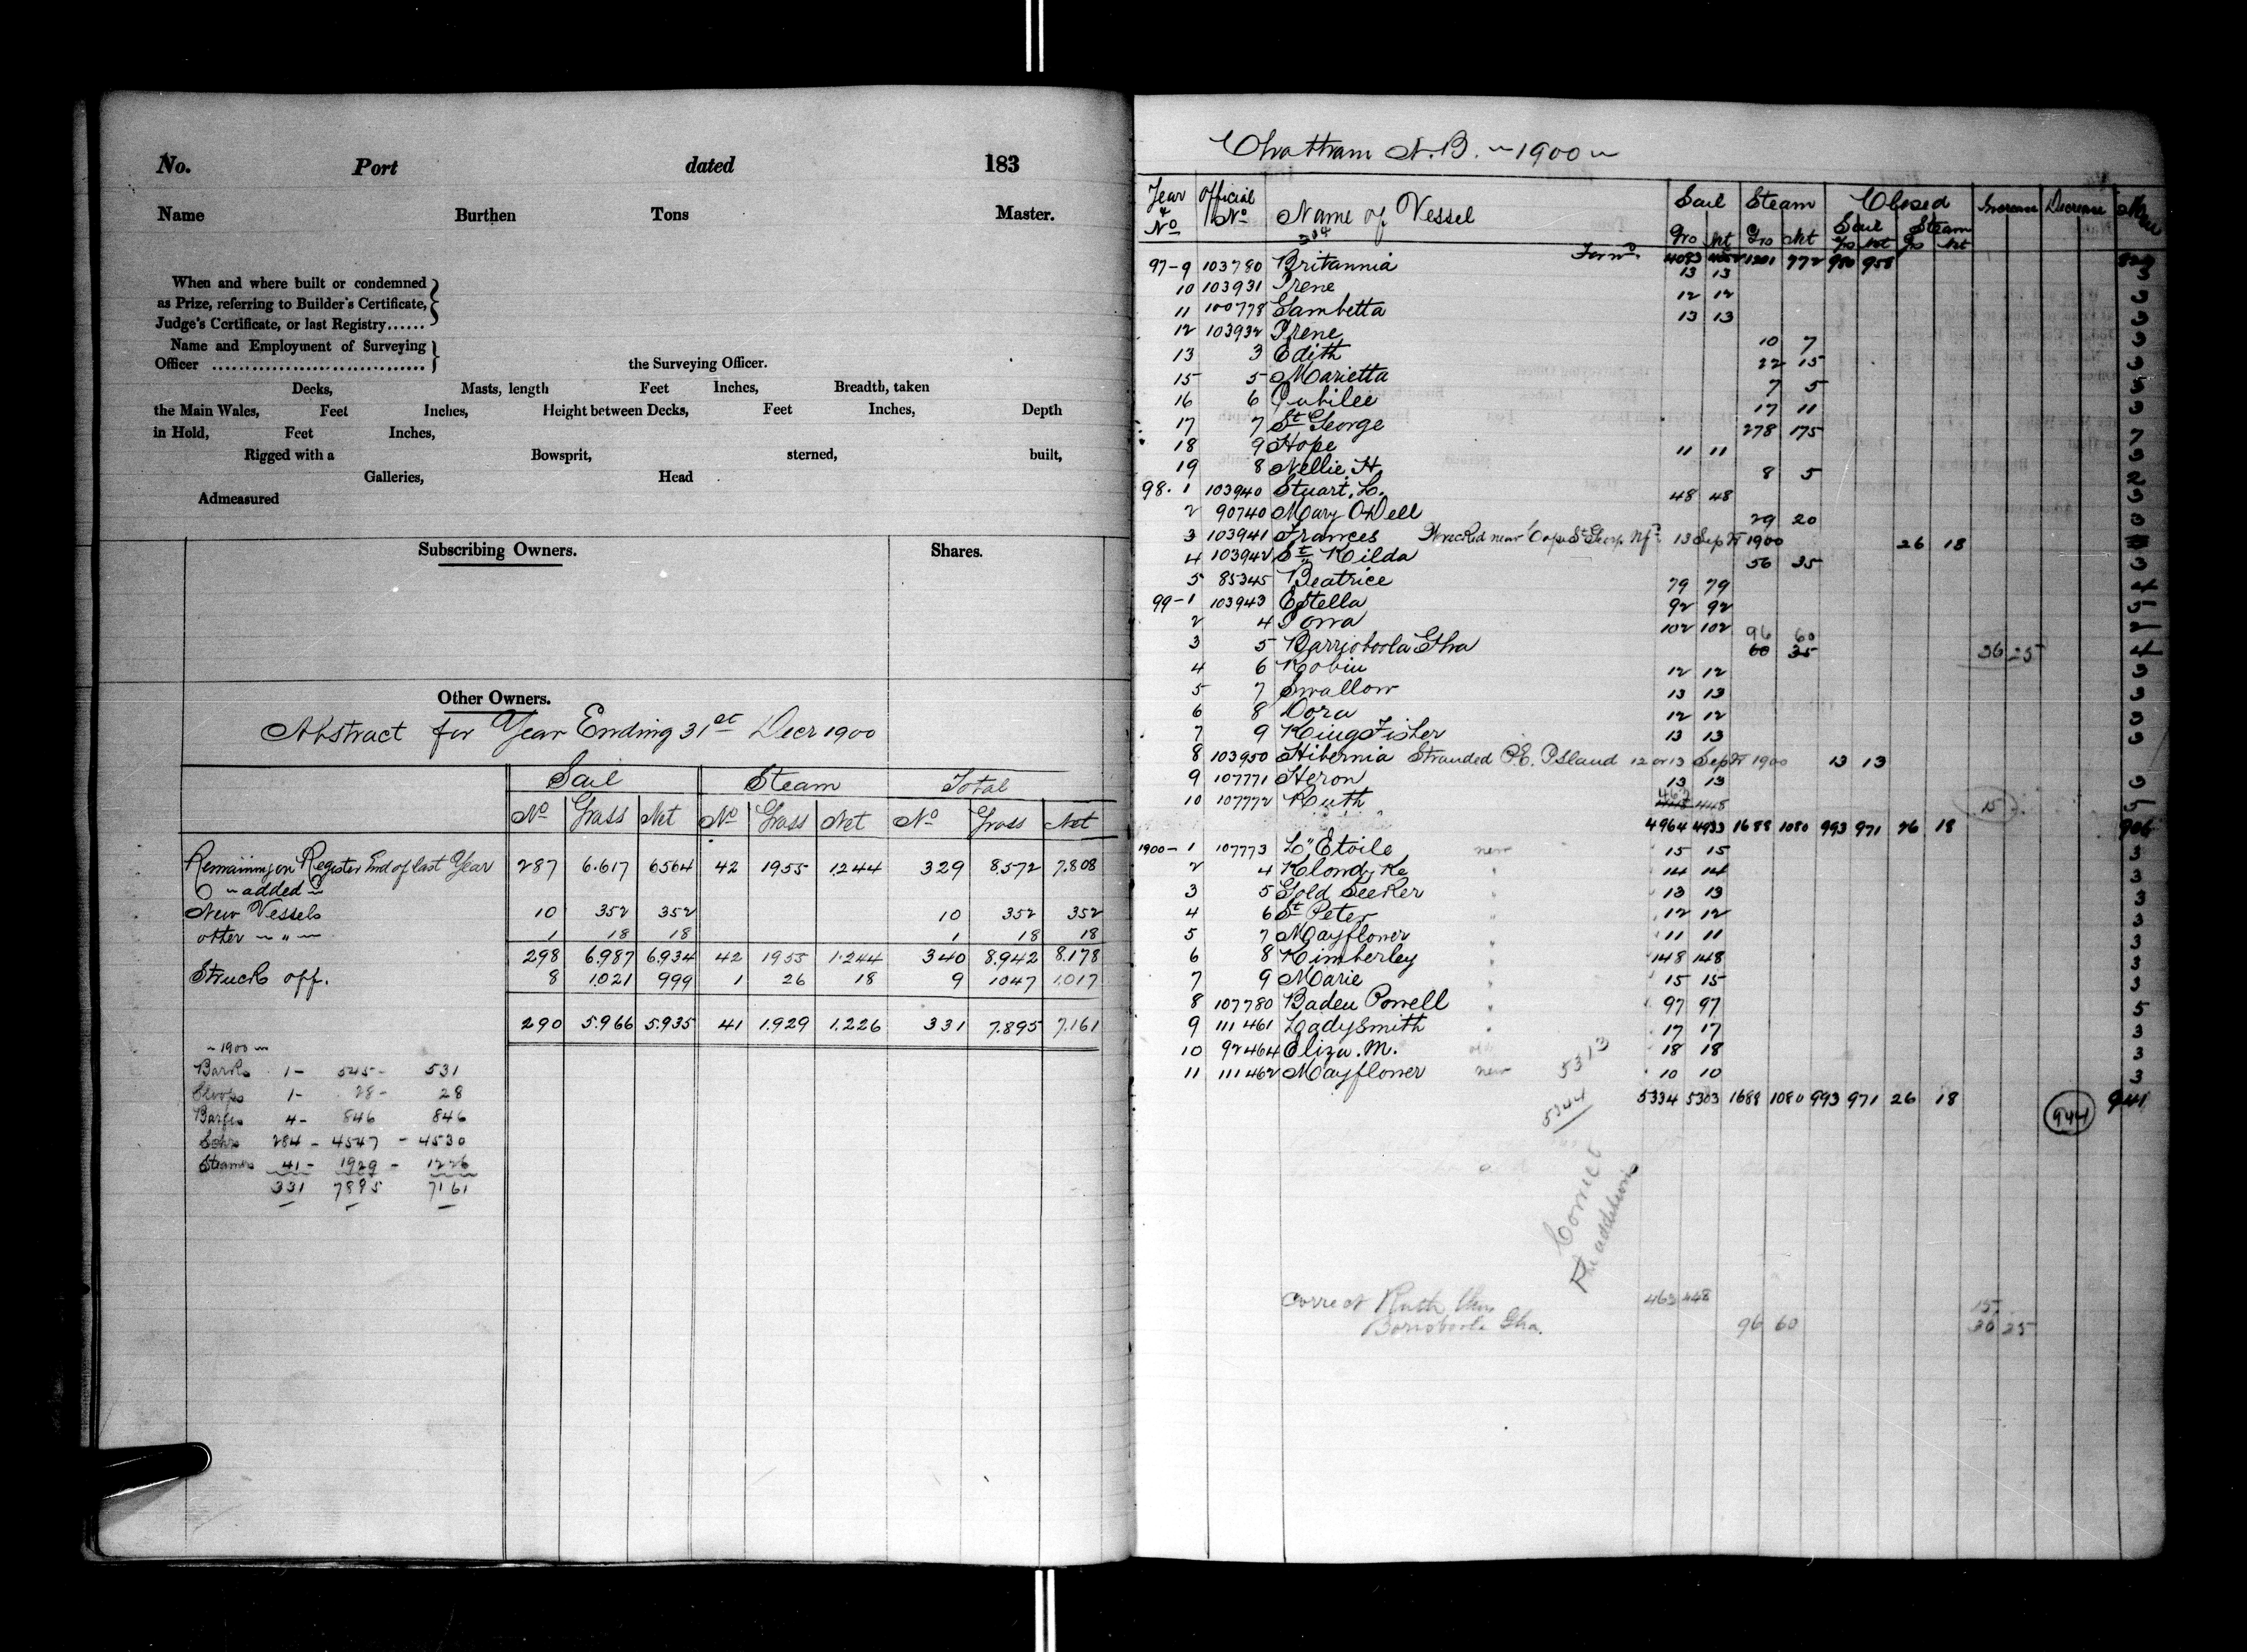 No. Port dated 183
Name Burthen Tons Master.
When and where built or condemned
as Prize, referring to Builder's Certificate,
Judge's Certificate, or last Registry......
Name and Employment of Surveying
Officer ................................ the Surveying Officer.
Decks, Masts, length Feet Inches, Breadth, taken
the Main Wales, Feet Inches, Height between Decks, Feet Inches, Depth
in Hold, Feet Inches,
Rigged with a Bowsprit, sterned, built,
Galleries, Head
Admeasured
Subscribing Owners. Shares.
Other Owners.
Abstract for Year Ending 31st Decr 1900
Sail Steam Total
No Gross Net No Gross Net No Gross Net
Remaining on Register End of last Year 287 6.617 6564 42 1955 1.244 329 8.572 7.808
" added "
New Vessels 10 352 352 10 352 352
other " 1 18 18 1 18 18
298 6.987 6.934 42 1955 1.244 340 8.942 8.178
Struck off. 8 1.021 999 1 26 18 9 1047 1.017
290 5.966 5.935 41 1.929 1.226 331 7.895 7.161
1900
Barks 1 - 545 - 531
Sloops 1 - 28 - 28
Barges 4 - 846 846
Schrs 284 - 4547 - 4530
Steamers 41 - 1929 - 1226
331 7895 7161
Chatham N.B. 1900
Year & No Official No Name of Vessel Sail Steam Closed Increase Decrease
Gro Nt Gro Net Sail Steam
Gro Nt Gs Nt
97-9 103780 Britannia Forwd. 4083 4052 1201 772 980 958
13 13 3
10 103931 Irene 12 12 3
11 100778 Gambetta 13 13 3
12 103932 Irene 10 7 3
13 3 Edith 22 15 3
15 5 Marietta 7 5 3
16 6 Jubilee 17 11 3
17 7 St George 278 175 7
18 9 Hope 11 11 3
19 8 Nellie H. 8 5 2
98. 1 103940 Stuart. L. 48 48 3
2 90740 Mary Odell 29 20 3
3 103941 Frances Wrecked near Cape St George Nfd 13 Sept 1900 26 18
4 103942 St Kilda 56 35 3
5 85345 Beatrice 79 79 4
99-1 103943 Estella 92 92
2 4 Iowa 102 102 96 60
3 5 Barrioboola Gha 60 35 36 25 4
4 6 Robin 12 12 3
5 7 Swallow 13 13 3
6 8 Dora 12 12 3
7 9 King Fisher 13 13 3
8 103950 Hibernia Stranded P.E. Island 12 or 13 Sept 1900 13 13
9 107771 Heron 13 13 3
10 107772 Ruth 463 448 15 9
4964 4933 1688 1080 993 971 26 18 906
1900-1 107773 L'Etoile new 15 15 3
2 4 Klondyke " 14 14 3
3 5 Gold Seeker " 13 13 3
4 6 St Peter " 12 12 3
5 7 Mayflower " 11 11 3
6 8 Kimberley " 148 148 3
7 9 Marie " 15 15 3
8 107780 Baden Powell " 97 97 5
9 111461 Ladysmith " 17 17 3
10 92464 Eliza. M. old 18 18 3
11 111462 Mayflower new 10 10 3
5313
5344
5334 5303 1688 1080 993 971 26 18 944 941
Correct
the additions
Correct Ruth 463 448 15
Borioboola Gha. 96 60 36 25